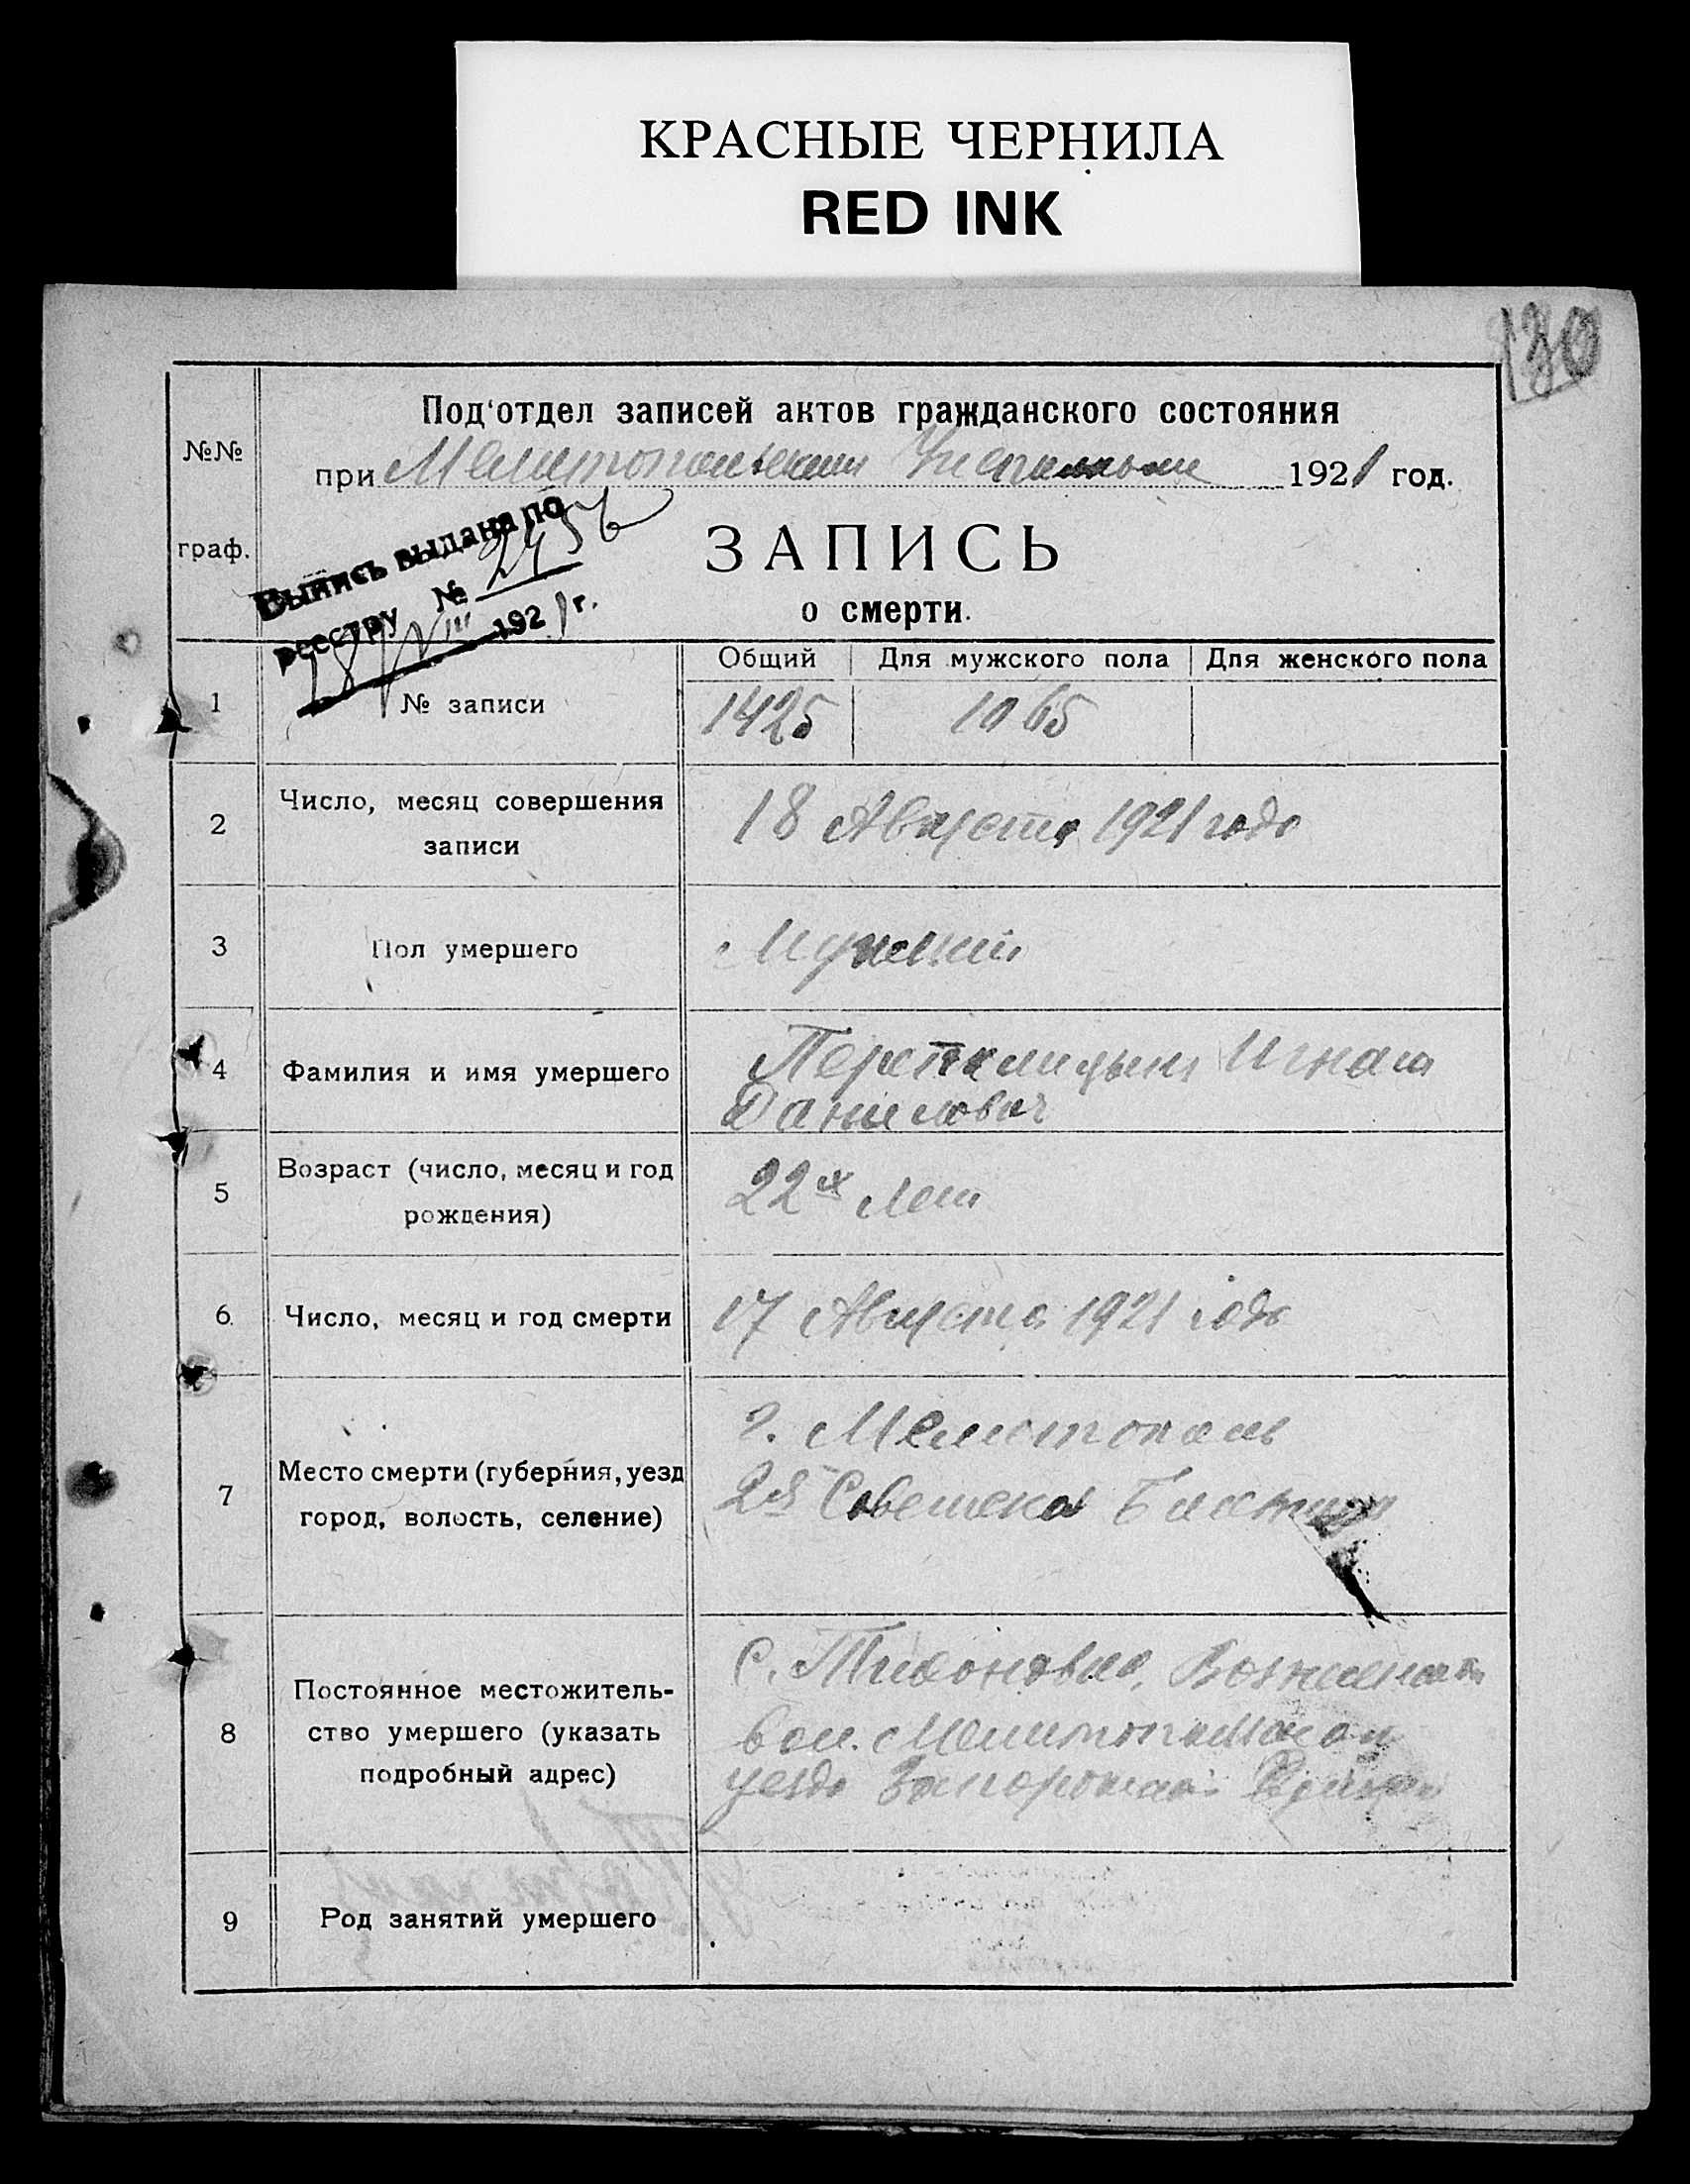 КРАСНЫЕ ЧЕРНИЛА
RED INK
130
Под'отдел записей актов гражданского состояния
№№
при Мелитопольском 1921 год.
граф.
Выпись выдана по
реестру № 2456
18/VIII 1921 г.
ЗАПИСЬ
о смерти.
Общий Для мужского пола Для женского пола
1 № записи 1425 1065
2 Число, месяц совершения
записи
18 Августа 1921 года
3 Пол умершего Мужский
4 Фамилия и имя умершего
Игнат
Данилович
5 Возраст (число, месяц и год
рождения)
22х лет
6. Число, месяц и год смерти 17 Августа 1921 года
7 Место смерти (губерния, уезд
город, волость, селение)
г. Мелитополь
2я Советска
8 Постоянное местожитель-
ство умершего (указать
подробный адрес)
С. Тихоновка,
вол. Мелитопольск
уезда Запорожской
9 Род занятий умершего